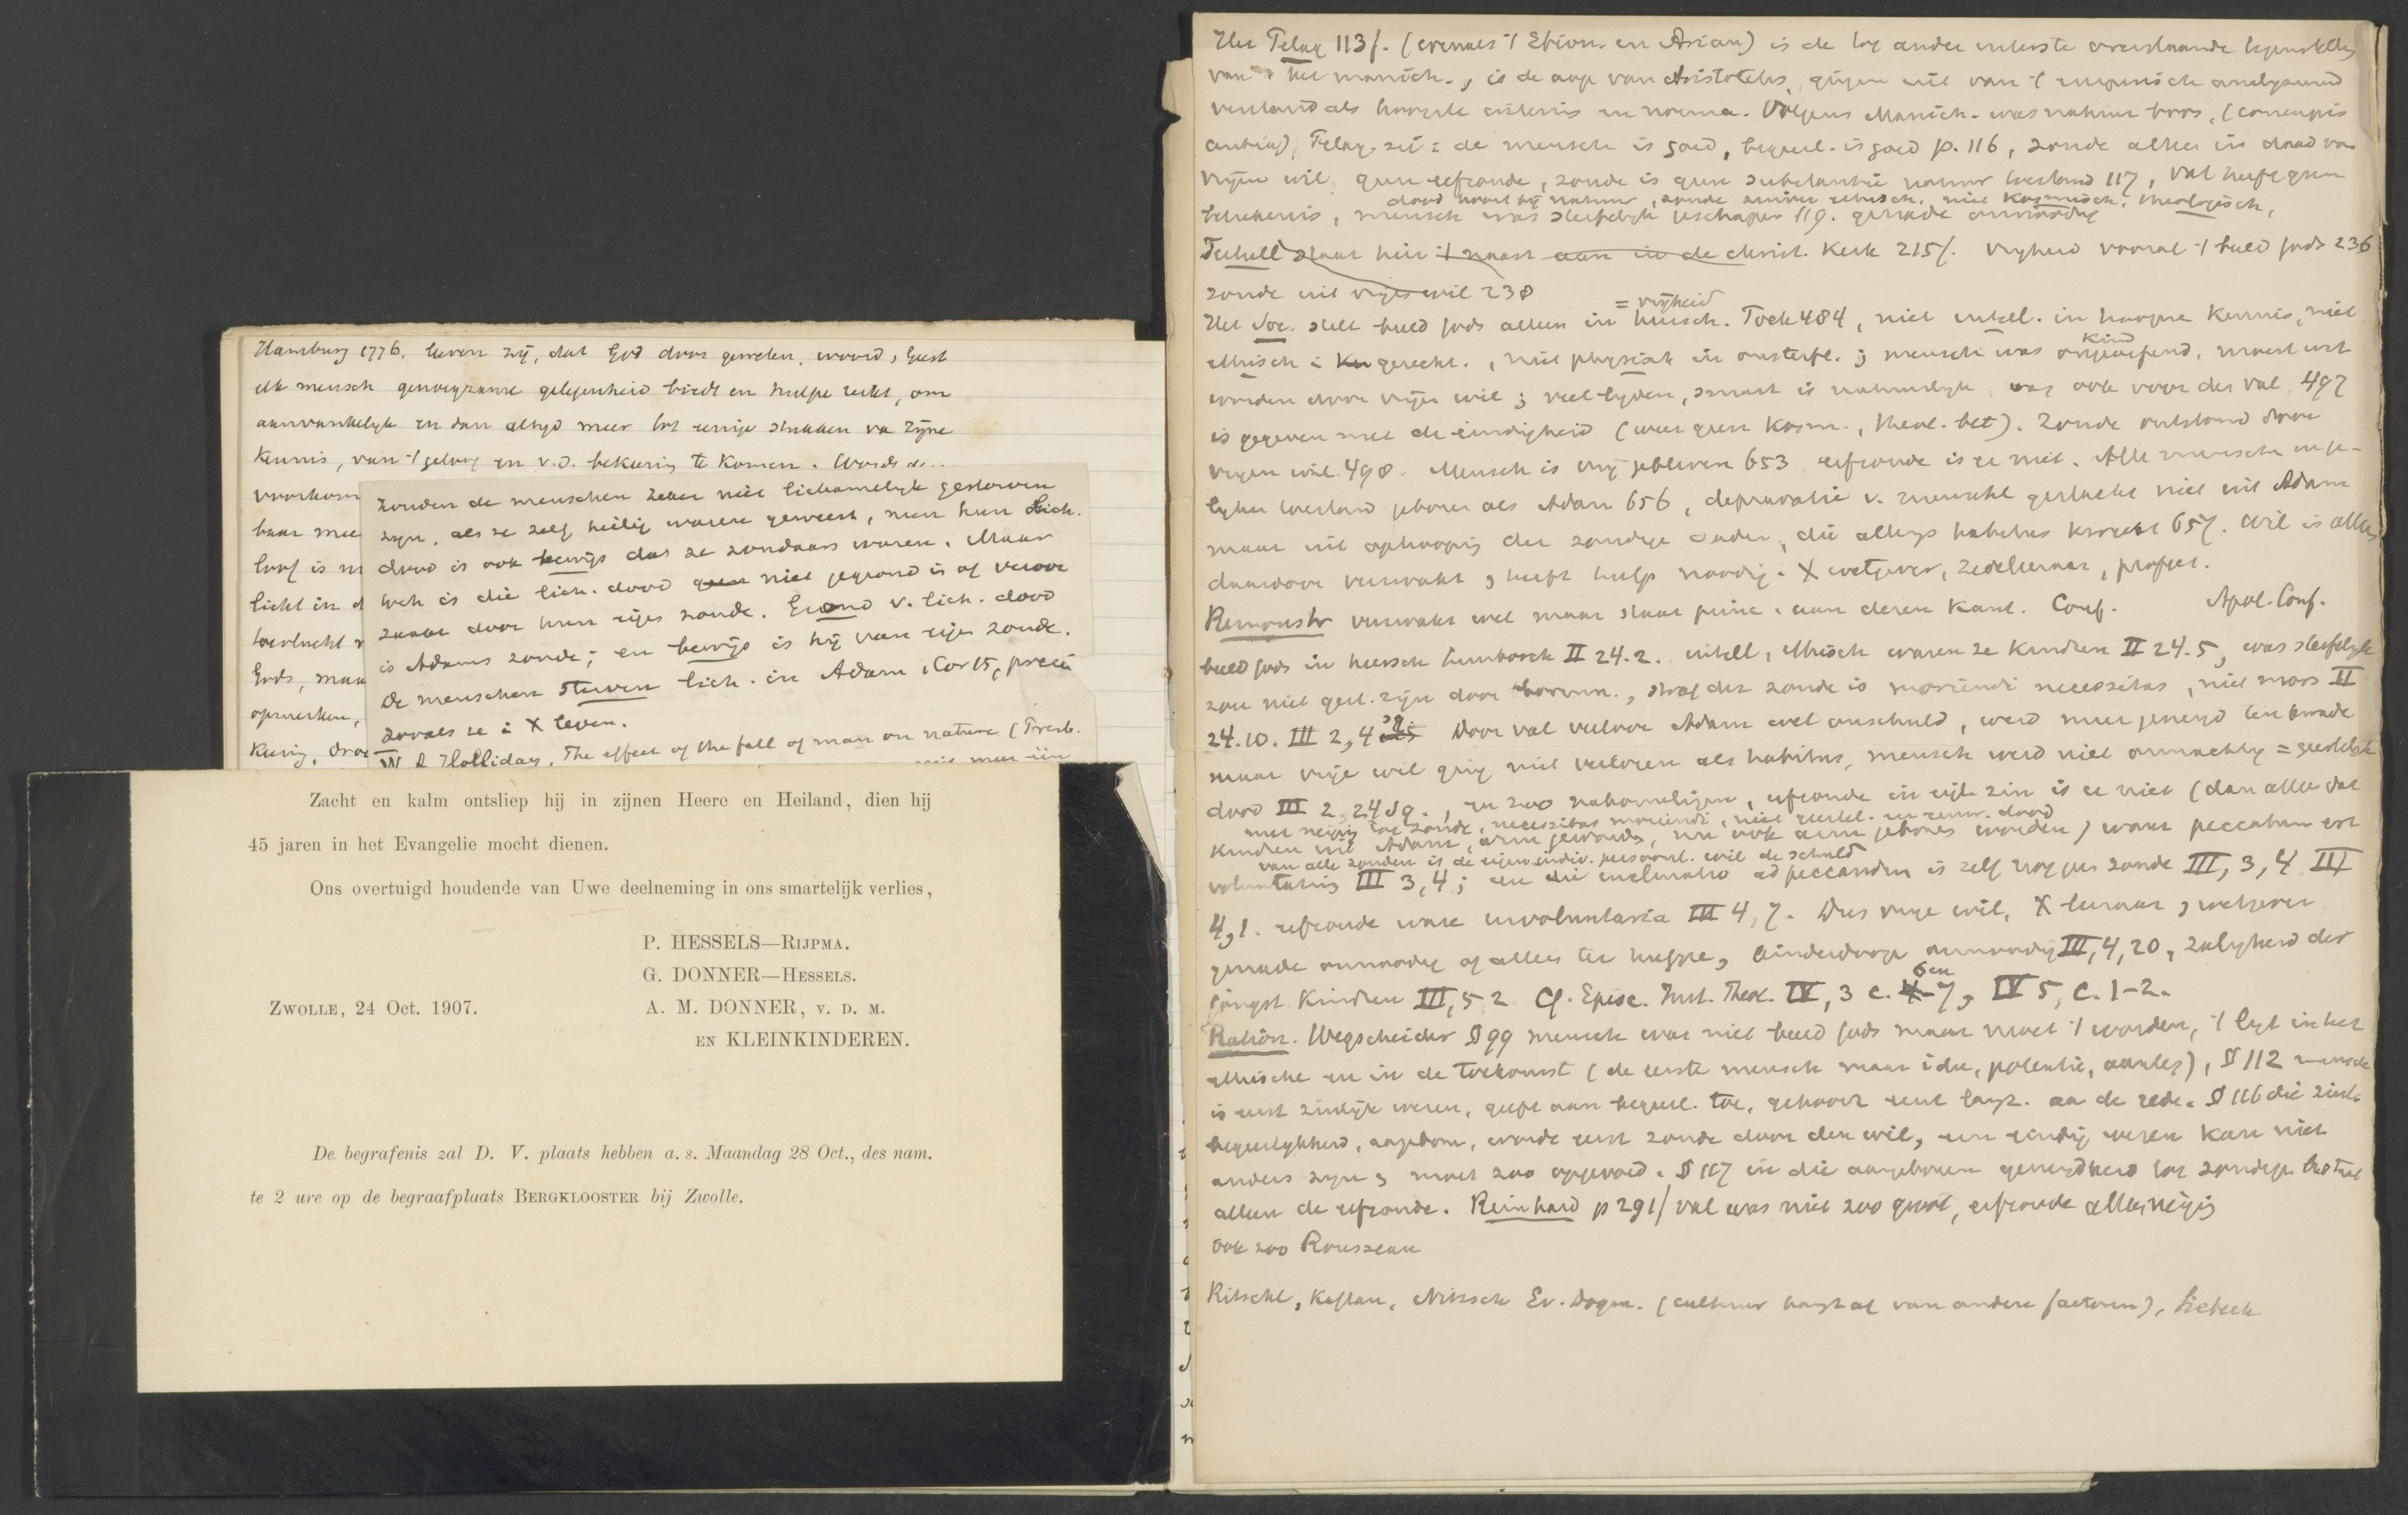 Hamburg 1776. leeren zij, dat God door geweten, woord, Geest
elk mensch genoegzame gelegenheid biedt en hulpe reikt, om
aanvankelijk en dan altijd meer tot eenige stukken va zijne
Kennis, van 't geloof en v.d. bekeering te Komen.
voorkom
baar mee
loof is
licht in d
toevlucht
Gods, maa
opmerken,
Keering, droe
zouden de menschen zeker niet lichamelijk gestorven
zijn, als ze zelf heilig waren geweest, men hun Lich.
dood is ook bewijs dat ze zondaars waren. Maar
toch is die lich. dood geen niet gegrond is of veroor
zaakt door hun eigen zonde. Grond v. lich. dood
is Adams zonde; en bewijs is hij van eigen zonde.
De menschen sterven lich. in Adam 1 Cor 15, precies
zooals ze i X leven.
W. A. Holliday, The effect of the fall of man on nature (Presb.
Zacht en kalm ontsliep hij in zijnen Heere en Heiland, dien hij
45 jaren in het Evangelie mocht dienen.
Ons overtuigd houdende van Uwe deelneming in ons smartelijk verlies,
P. HESSELS—RIJPMA.
G. DONNER—HESSELS.
ZWOLLE, 24 Oct. 1907.
A. M. DONNER, V. D. M.
EN KLEINKINDEREN.
De begrafenis zal D. V. plaats hebben a. s. Maandag 28 Oct., des nam.
te 2 ure op de begraafplaats BERGKLOOSTER bij Zwolle.
Het Pelag 113f. (evenals 't Ebion. en Arian) is de tot ander uiterste overslaande tegenstelling
van het manich., is de aap van Aristoteles, gingen uit van 't empirisch analyseerend
verstand als hoogste criterium en norma. Volgens Manich. was natuur boos,
Pelag. zei: de mensch is goed, begeerl. is goed p. 116, zonde alleen in daad van
vrijen wil, geen erfzonde, zonde is geen substantie natuur toestand 117, val heeft geen
dood hoort bij natuur, zonde zuiver ethisch, niet Kosmisch, theologisch,
beteekenis, mensch was sterfelijk geschapen 119. genade onnoodig
Tertull staat hier 't naast aan in de christ. Kerk 215f. Vrijheid vooral 't beeld Gods 236
zonde uit vrijen wil 238
= vrijheid
Het Soc. stelt beeld Gods alleen in heersch. Fock 484, niet intell. in hoogere Kennis, niet
Kind
ethisch i Ku gerecht., niet physisch in onsterfl.; mensch was ongeoefend, moest wat
worden door vrijen wil; veel lijden, smart is natuurlijk was ook voor den val 497
is gegeven met de eindigheid (weer geen Kosm., theol. bet). Zonde ontstond door
vrijen wil 498. Mensch is vrij gebleven 653 erfzonde is er niet. Alle menschen in ge-
lijken toestand geboren als Adam 656, depravatie v. menschl geslacht niet uit Adam
maar uit ophooping der zondige daden, die allengs habitus kweekt 657. Wil is alleen
daardoor verzwakt, heeft hulp noodig. X wetgever, zedeleeraar, profeet.
Remonstr verzwakt wel maar staat princ. aan deren Kant. Conf. Apol. Conf.
beeld Gods in heersch Limborch II 24.2. intell, ethisch waren ze Kinderen II 24.5, was sterfelijk
zou niet gest. zijn door , straf der zonde is moriendi necessitas, niet mors II
24.10. III 2, 4 Door val verloor Adam wel onschuld, werd meer geneigd ten kwade
maar vrije wil ging niet verloren als habitus, mensch werd niet onmachtig = geestelijk
dood III 2, 24 sq., en zoo nakomelingen, erfzonde in eig. zin is er niet (dan alleen dat
met neiging tot zonde, necessitas moriendi, niet geestel. en eeuw. dood
Kinderen uit Adam, arm geworden, nu ook arm geboren worden) want peccatum est
van alle zonden is de eigen individ. persoonl. wil de schuld
voluntarium III 3, 4; en die inclinatio ad peccandum is zelf nog geen zonde III, 3, 4 III
4, 1. erfzonde ware involuntaria III 4, 7. Dus vrije wil, X leeraar, wetgever
genade onnoodig of alleen ter hulpe, Kinderdoop onnoodig III, 4, 20, zaligheid der
6 en
jongst. Kindren III, 5 2 Cf. Episc. Inst. Theol. IV, 3 c. 7, IV 5, c. 1-2.
Ration. Wegscheider § 99 mensch was niet beeld Gods maar moet 't worden, 't ligt in het
ethische en in de toekomst (de eerste mensch maar idee, potentie, aanleg), § 112 mensch
is eerst zinlijk wezen, geeft aan begeerl. toe, gehoorz eerst langz. aa de rede. § 116 die zinl.
begeerlijkheid, wordt eerst zonde door den wil, een eindig wezen Kan niet
anders zijn, moet zoo opgevoed. § 117 in die aangeboren geneigdheid tot zondige bestaat
alleen de erfzonde. Reinhard p 291f val was niet zoo groot, erfzonde alleen neiging
ook zoo Rousseau
Ritschl, Kaftan, Nitzsch Ev. Dogm. (cultuur hangt af van andere factoren), Siebeck